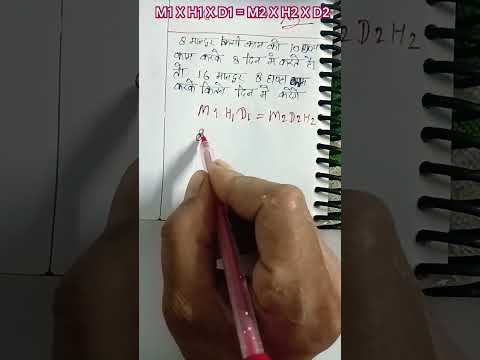 M1 X H1 X D1 = M2 X H2 X D2
8 मजदूर किसी काम को 10
काम करके 8 दिन में करते है।
तो 16 मजदूर 8 हाफ्ता
करके कितने दिन में करेंगे
M1 H1 D1 = M2 D2 H2
8
2 D2 H2